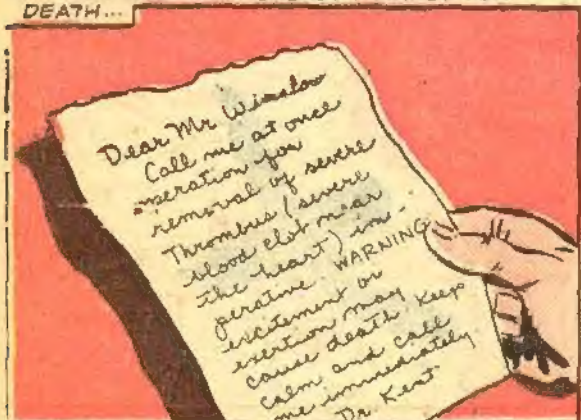 DEATH...
Dear Mr Winslow
Call me at once
operation for
removal of severe
Thrombus (severe
blood clot near
the heart) im-
perative. WARNING
excitement or
exertion may
cause death. Keep
calm and call
me immediately.
Dr. Kent